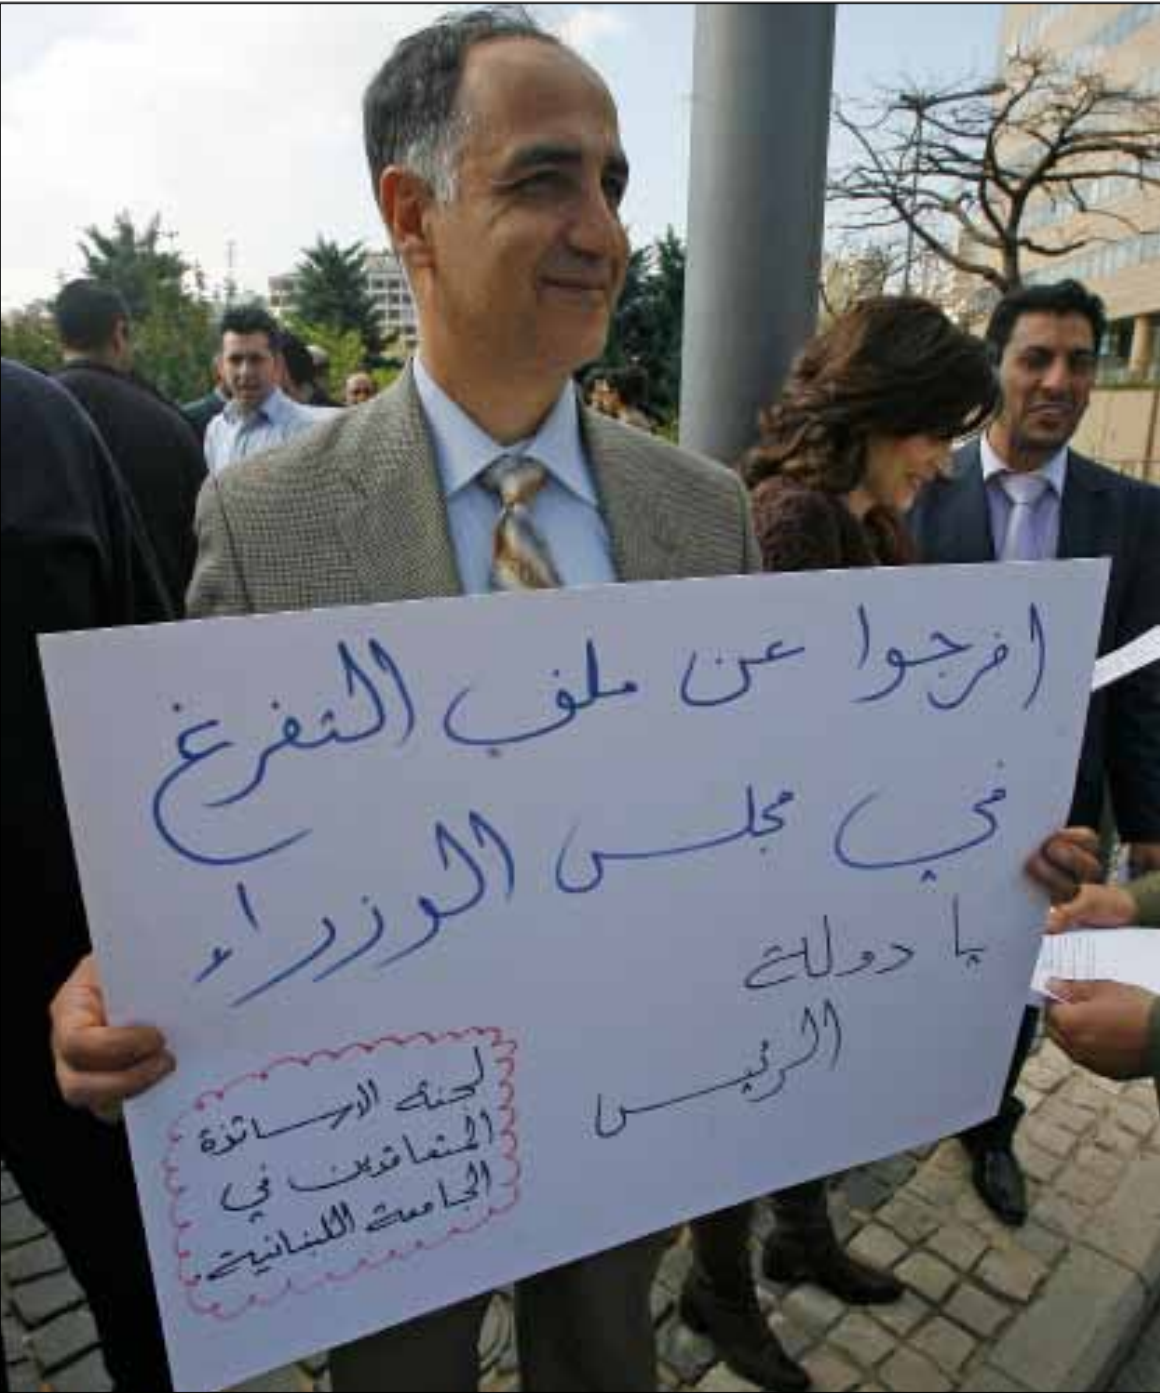 افرجوا عن ملف التفرغ
في مجلس الوزراء
يا دولة
الرئيس
لجنة الاساتذة
المتعاقدين في
الجامعة اللبنانية.